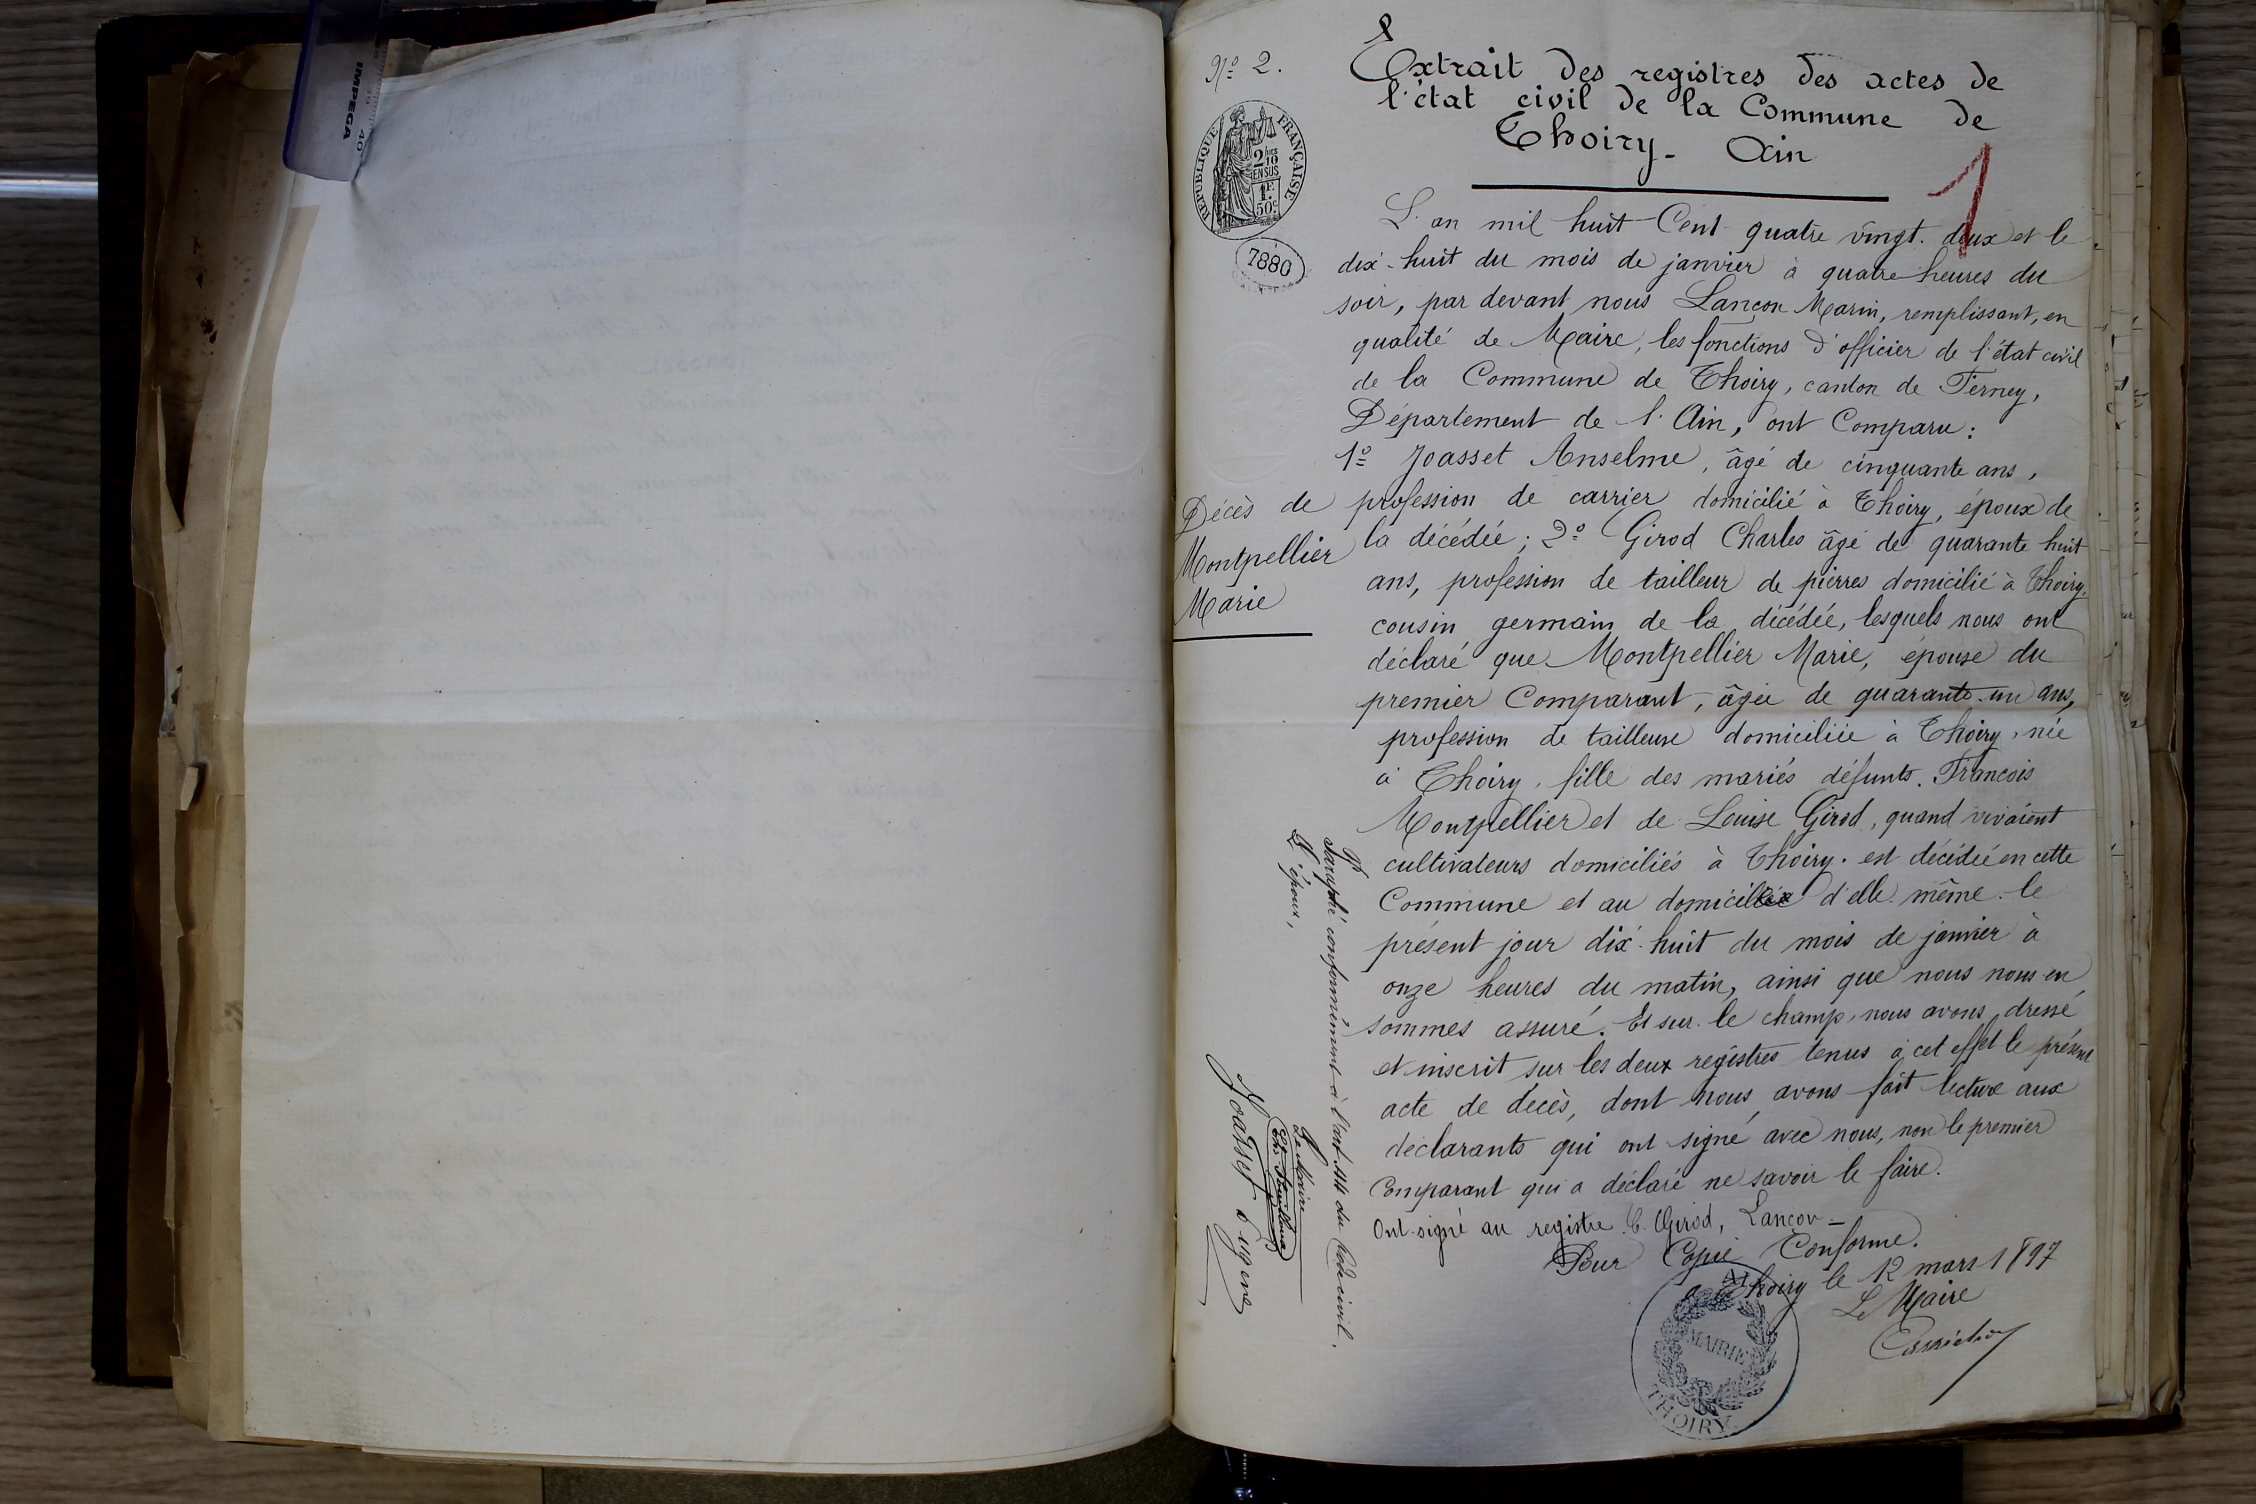 Nº 2.
Extrait des registres des actes de
l'état civil de la Commune de
Thoiry - Ain
RÉPUBLIQUE FRANÇAISE
2/10
EN SUS
1F.
50c.
7880
1
L'an mil huit Cent quatre vingt-deux et le
dix-huit du mois de janvier à quatre heures du
soir, par devant nous Lançon Marin, remplissant, en
qualité de Maire, les fonctions d'officier de l'état civil
de la Commune de Thoiry, canton de Ferney,
Département de l'Ain, ont Comparu:
1º Joasset Anselme, âgé de cinquante ans,
profession de carrier domicilié à Thoiry, époux de
la décédée; 2º Girod Charles âgé de quarante huit
ans, profession de tailleur de pierres domicilié à Thoiry,
cousin germain de la décédée, lesquels nous ont
déclaré que Montpellier Marie, épouse du
premier Comparant, âgée de quarante-un ans,
profession de tailleuse domiciliée à Thoiry, née
à Thoiry, fille des mariés défunts. Francois
Montpellier et de Louise Girod, quand vivaient
cultivateurs domiciliés à Thoiry. est décédée en cette
Commune et au domicile d'elle même. le
présent jour dix-huit du mois de janvier à
onze heures du matin, ainsi que nous nous en
sommes assuré. Et sur le champ, nous avons dressé
et inscrit sur les deux registres tenus à cet effet le présent
acte de décès, dont nous avons fait lecture aux
déclarants qui ont signé avec nous, non le premier
Comparant qui a déclaré ne savoir le faire.
Ont signé au registre C. Girod, Lançon -
Pour Copie Conforme.
à Thoiry le 12 mars 1897
Le Maire
MAIRIE
THOIRY
AIN
Décès de
Montpellier
Marie
Paraphé conformément à l'art. 44 du Code civil.
L'époux,
Le Maire
Joasset Eugene
IMPEGA
40